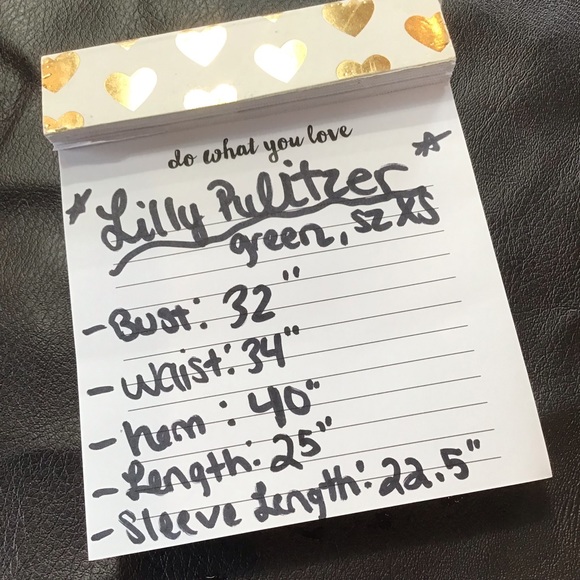 do what you love
☆ Lilly Pulitzer ☆
green, sz XS
- Bust: 32"
- Waist: 34"
- hem: 40"
- Length: 25"
- Sleeve Length: 22.5"